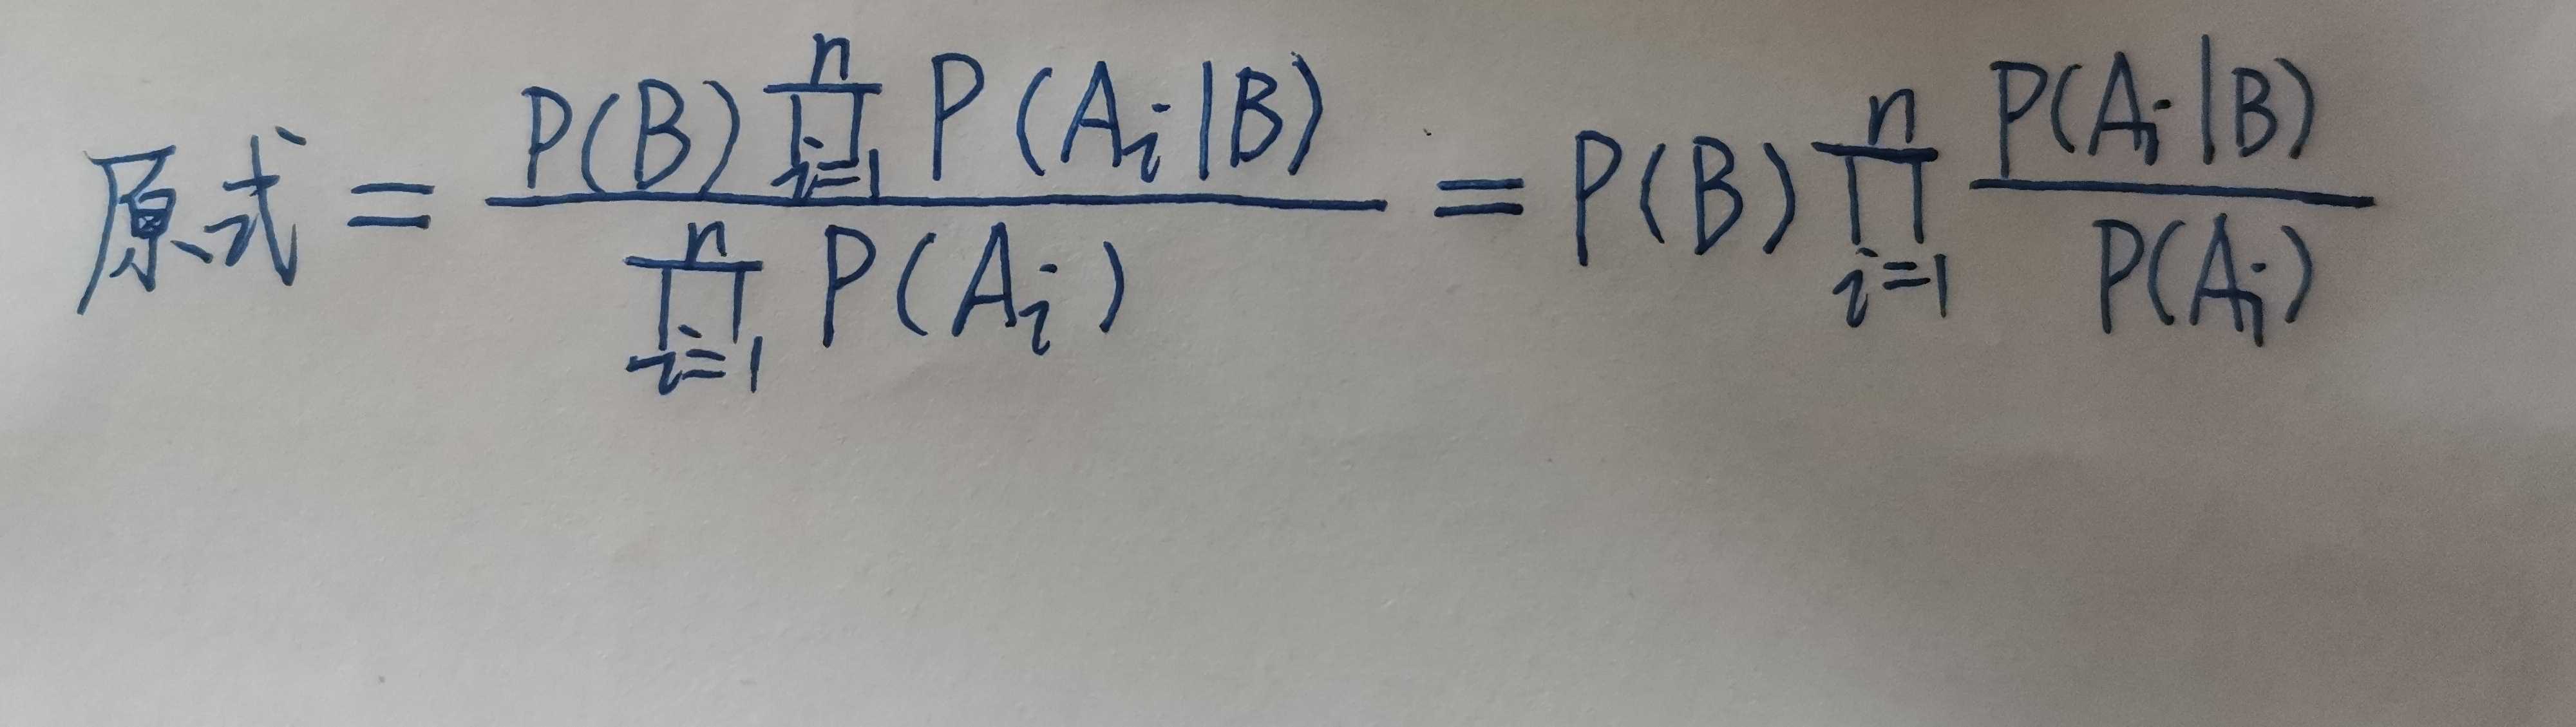 原式 = \frac{P(B) \prod_{i=1}^{n} P(A_i|B)}{\prod_{i=1}^{n} P(A_i)} = P(B) \prod_{i=1}^{n} \frac{P(A_i|B)}{P(A_i)}